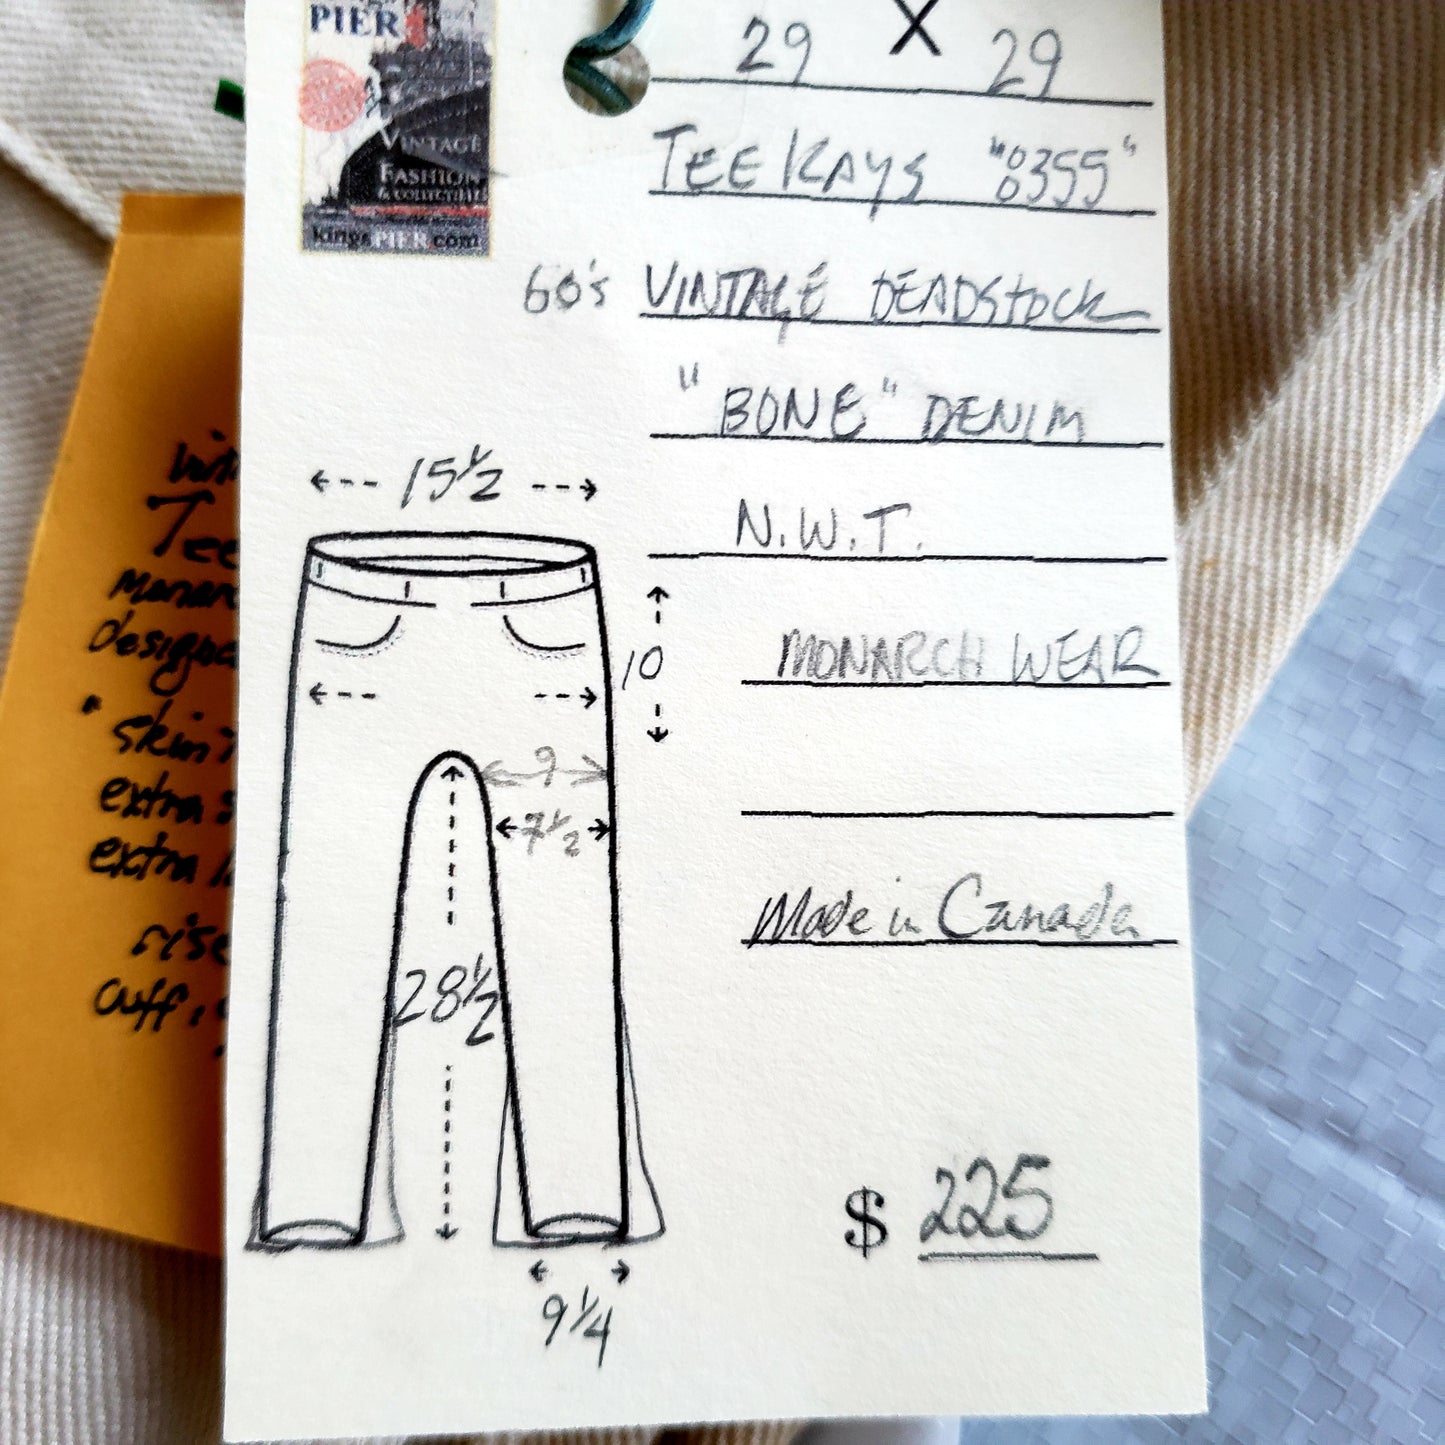 PIER
VINTAGE
FASHION
& COLLECTIBLES
kingsPIER.com
29 X 29
TEE KAYS "0355"
60's VINTAGE DEADSTOCK
"BONE" DENIM
N.W.T.
MONARCH WEAR
Made in Canada
$ 225
15 1/2
10
9
7 1/2
28 1/2
9 1/4
Tee
extra
extra
rise
cuff,